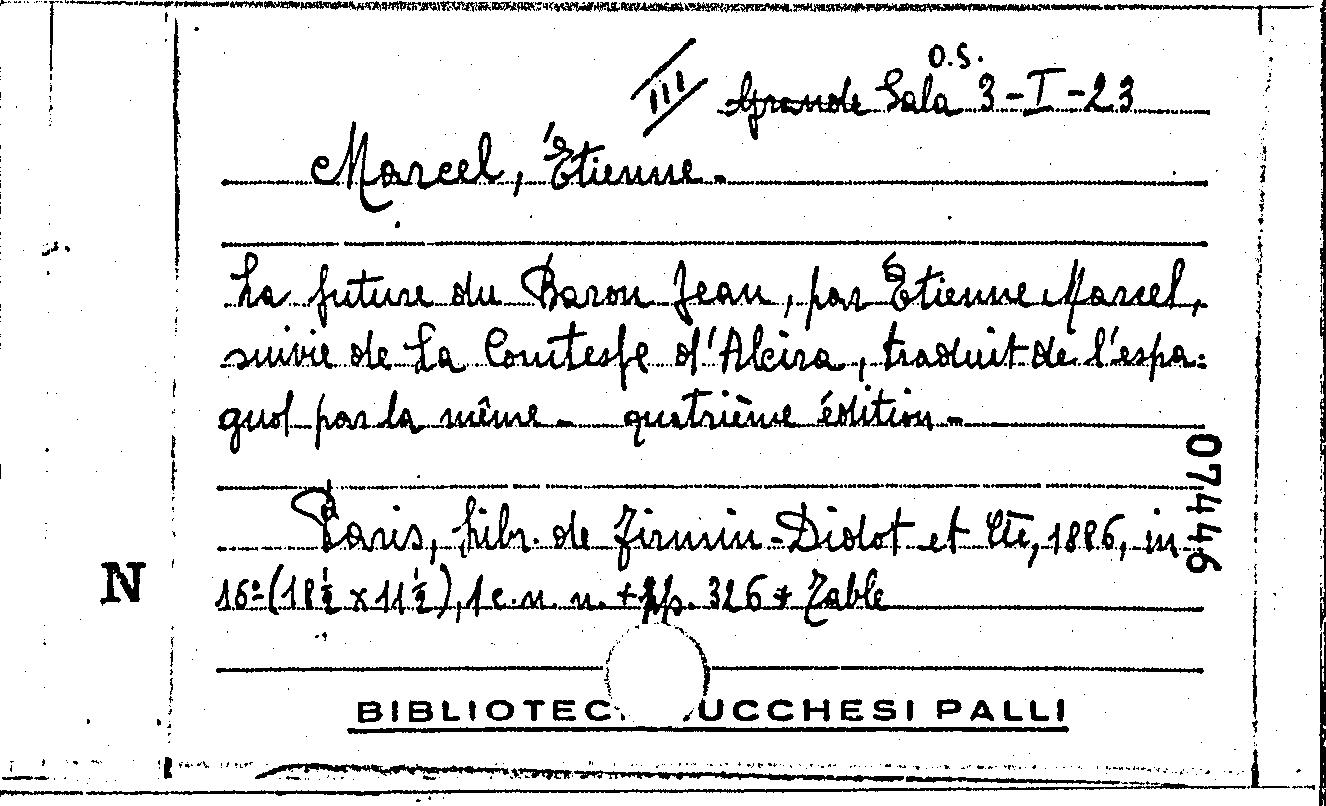 O.S.
III Grande Sala 3-I-23
Marcel, Étienne.
La future du Baron Jean, par Étienne Marcel,
suivie de La Comtesse d'Alcira, traduit de l'espa=
gnol par la même - quatrième édition -
Paris, Libr. de Firmin-Didot et Cie, 1886, in
16º (18½ x 11½), 1 c. n. n. + pp. 326 + Table
07446
N
BIBLIOTEC UCCHESI PALLI